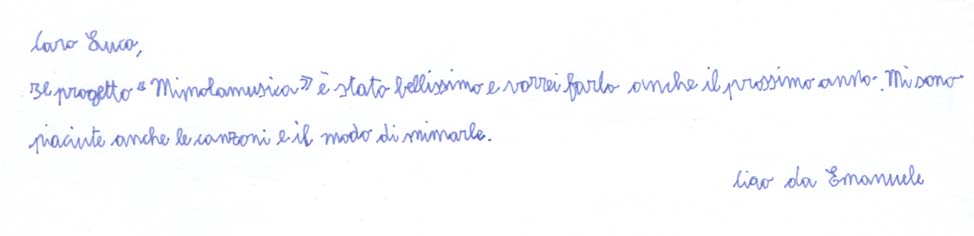 Caro Luca,
Il progetto "Mimolamusica" è stato bellissimo e vorrei farlo anche il prossimo anno. Mi sono
piaciute anche le canzoni e il modo di mimarle.
Ciao da Emanuele